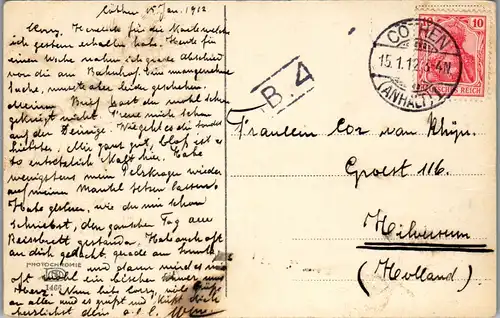 Cöthen 15 Jan. 1912
Corry. Herzliche für die Karte welche
ich gestern erhalten habe. Heute für
einen Woche nahm ich grade Abschied
von dir am Bahnhof. Ein unangenehme
Sache, musste aber leider geschehen.
Meinen Brief hast du wohl schon
gekriegt nicht? Freue mich schon
auf den Deinige. Wie geht es dir sonst
Liebster, Mir ganz gut, bloss ist es
so entsetzlich kalt hier. Habe
wenigstens mein Pelzkragen wieder
auf meinen Mantel setzen lassen.
Habe gestern, wie du mir schon
schriebst, den ganzen Tag am
Reissbrett gestanden. Hab auch oft
an dich gedacht, gerade an
und dann wird es mir
oft wohl ein bischen schwer ums
Herz. Nun liebe Corry, viel Grüsse
an allen und es grüsst und küsst dich
herzlichst dein
PHOTOCHROMIE
1466
B. 4
CÖTHEN
15.1.12. 3-4N.
(ANHALT)
10
DEUTSCHES REICH
Fräulein Cor van
Groest 116.
Hilversum
(Holland)